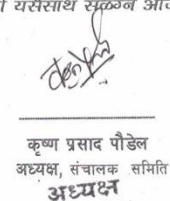 यसैसाथ संलग्न
कृष्ण प्रसाद पौडेल
अध्यक्ष, संचालक समिति
अध्यक्ष